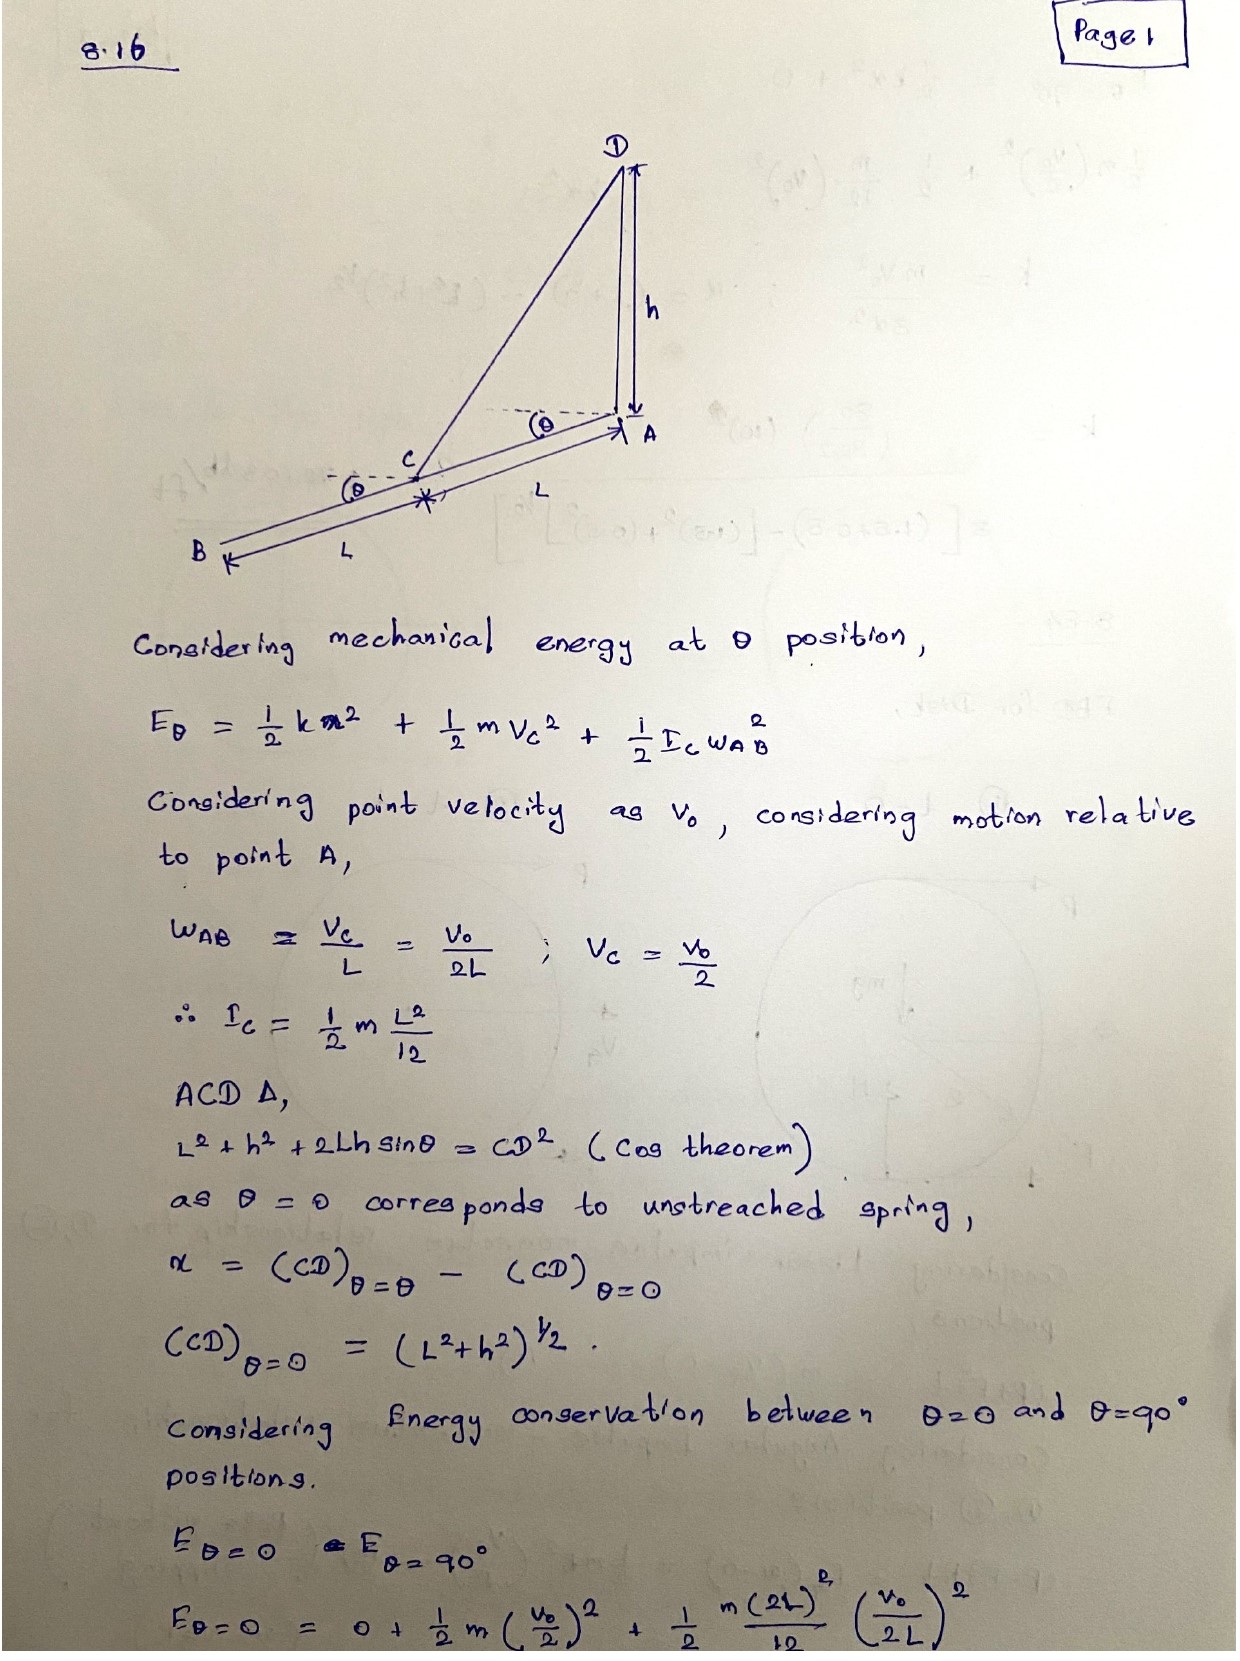 8.16
Page 1
D
h
θ
A
C
θ
L
B
L
Considering mechanical energy at θ position,
Eθ = 1/2 k x² + 1/2 m Vc² + 1/2 Ic WAB²
Considering point velocity as V₀, considering motion relative
to point A,
WAB = Vc/L = V₀/2L ; Vc = V₀/2
∴ Ic = 1/2 m L²/12
ACD Δ,
L² + h² + 2Lh sinθ = CD². (Cos theorem)
as θ = 0 corresponds to unstreached spring,
x = (CD)θ=θ − (CD)θ=0
(CD)θ=0 = (L²+h²)^1/2 .
Considering Energy conservation between θ=0 and θ=90°
positions.
Eθ=0 = Eθ=90°
Eθ=0 = 0 + 1/2 m (V₀/2)² + 1/2 m(2L)²/12 (V₀/2L)²